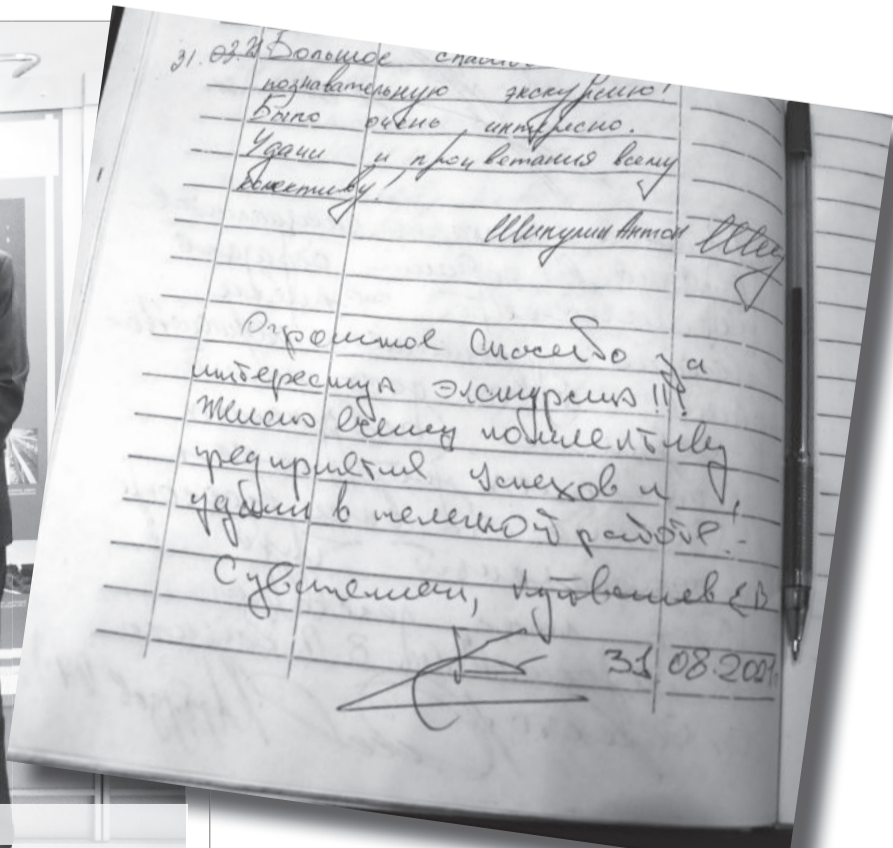 31.03.21 Большое спасибо
познавательную экскурсию!
Было очень интересно.
Удачи и процветания всему
коллективу!
Шипулин Антон
Огромное спасибо за
интересную экскурсию!!!
Желаю всему коллективу
предприятия успехов и
удачи в нелегкой работе!
С уважением, Куйвашев ЕВ
31.08.2021